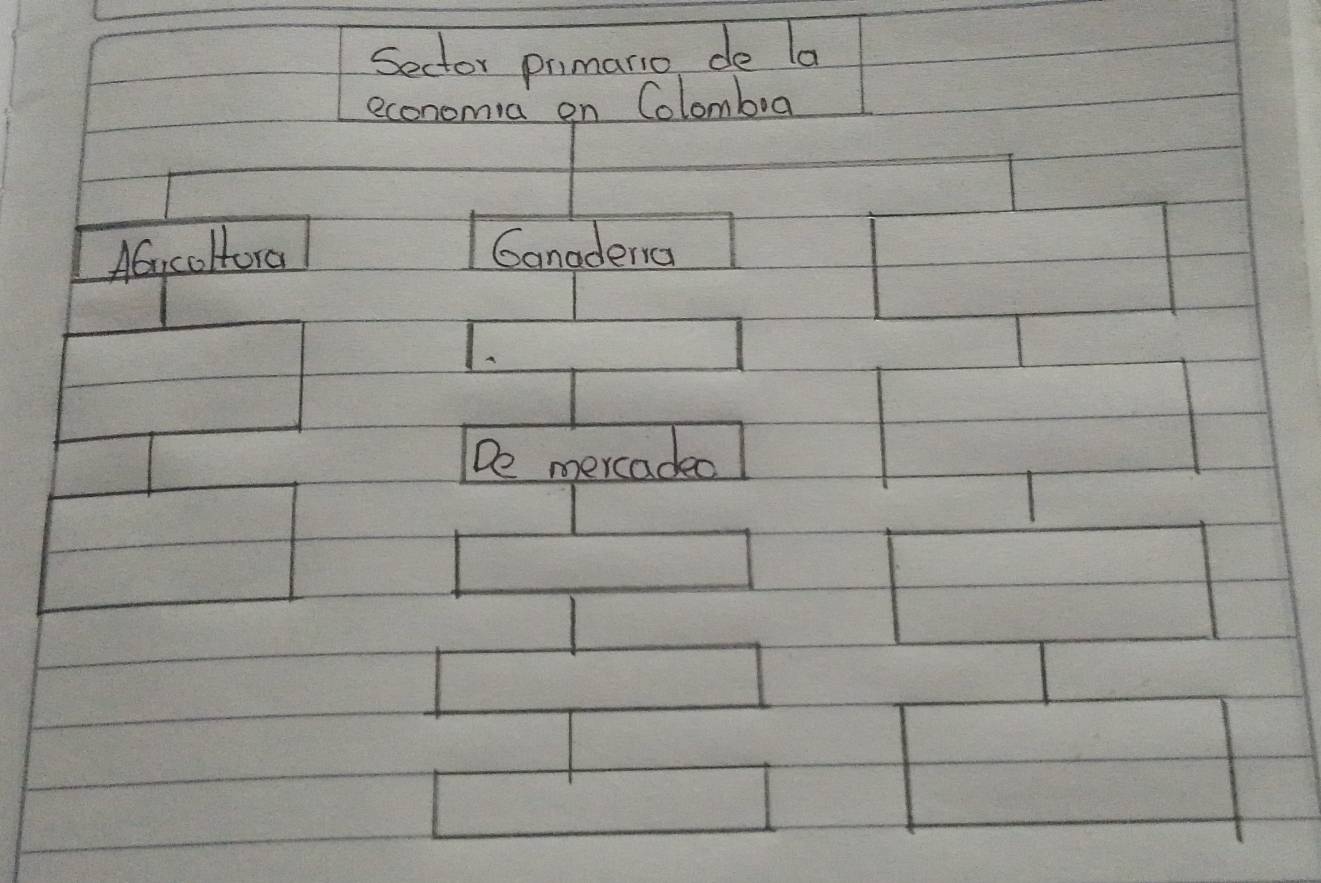 Sector primario de la
economia en Colombia
AGricoltora
Ganaderia
De mercadeo